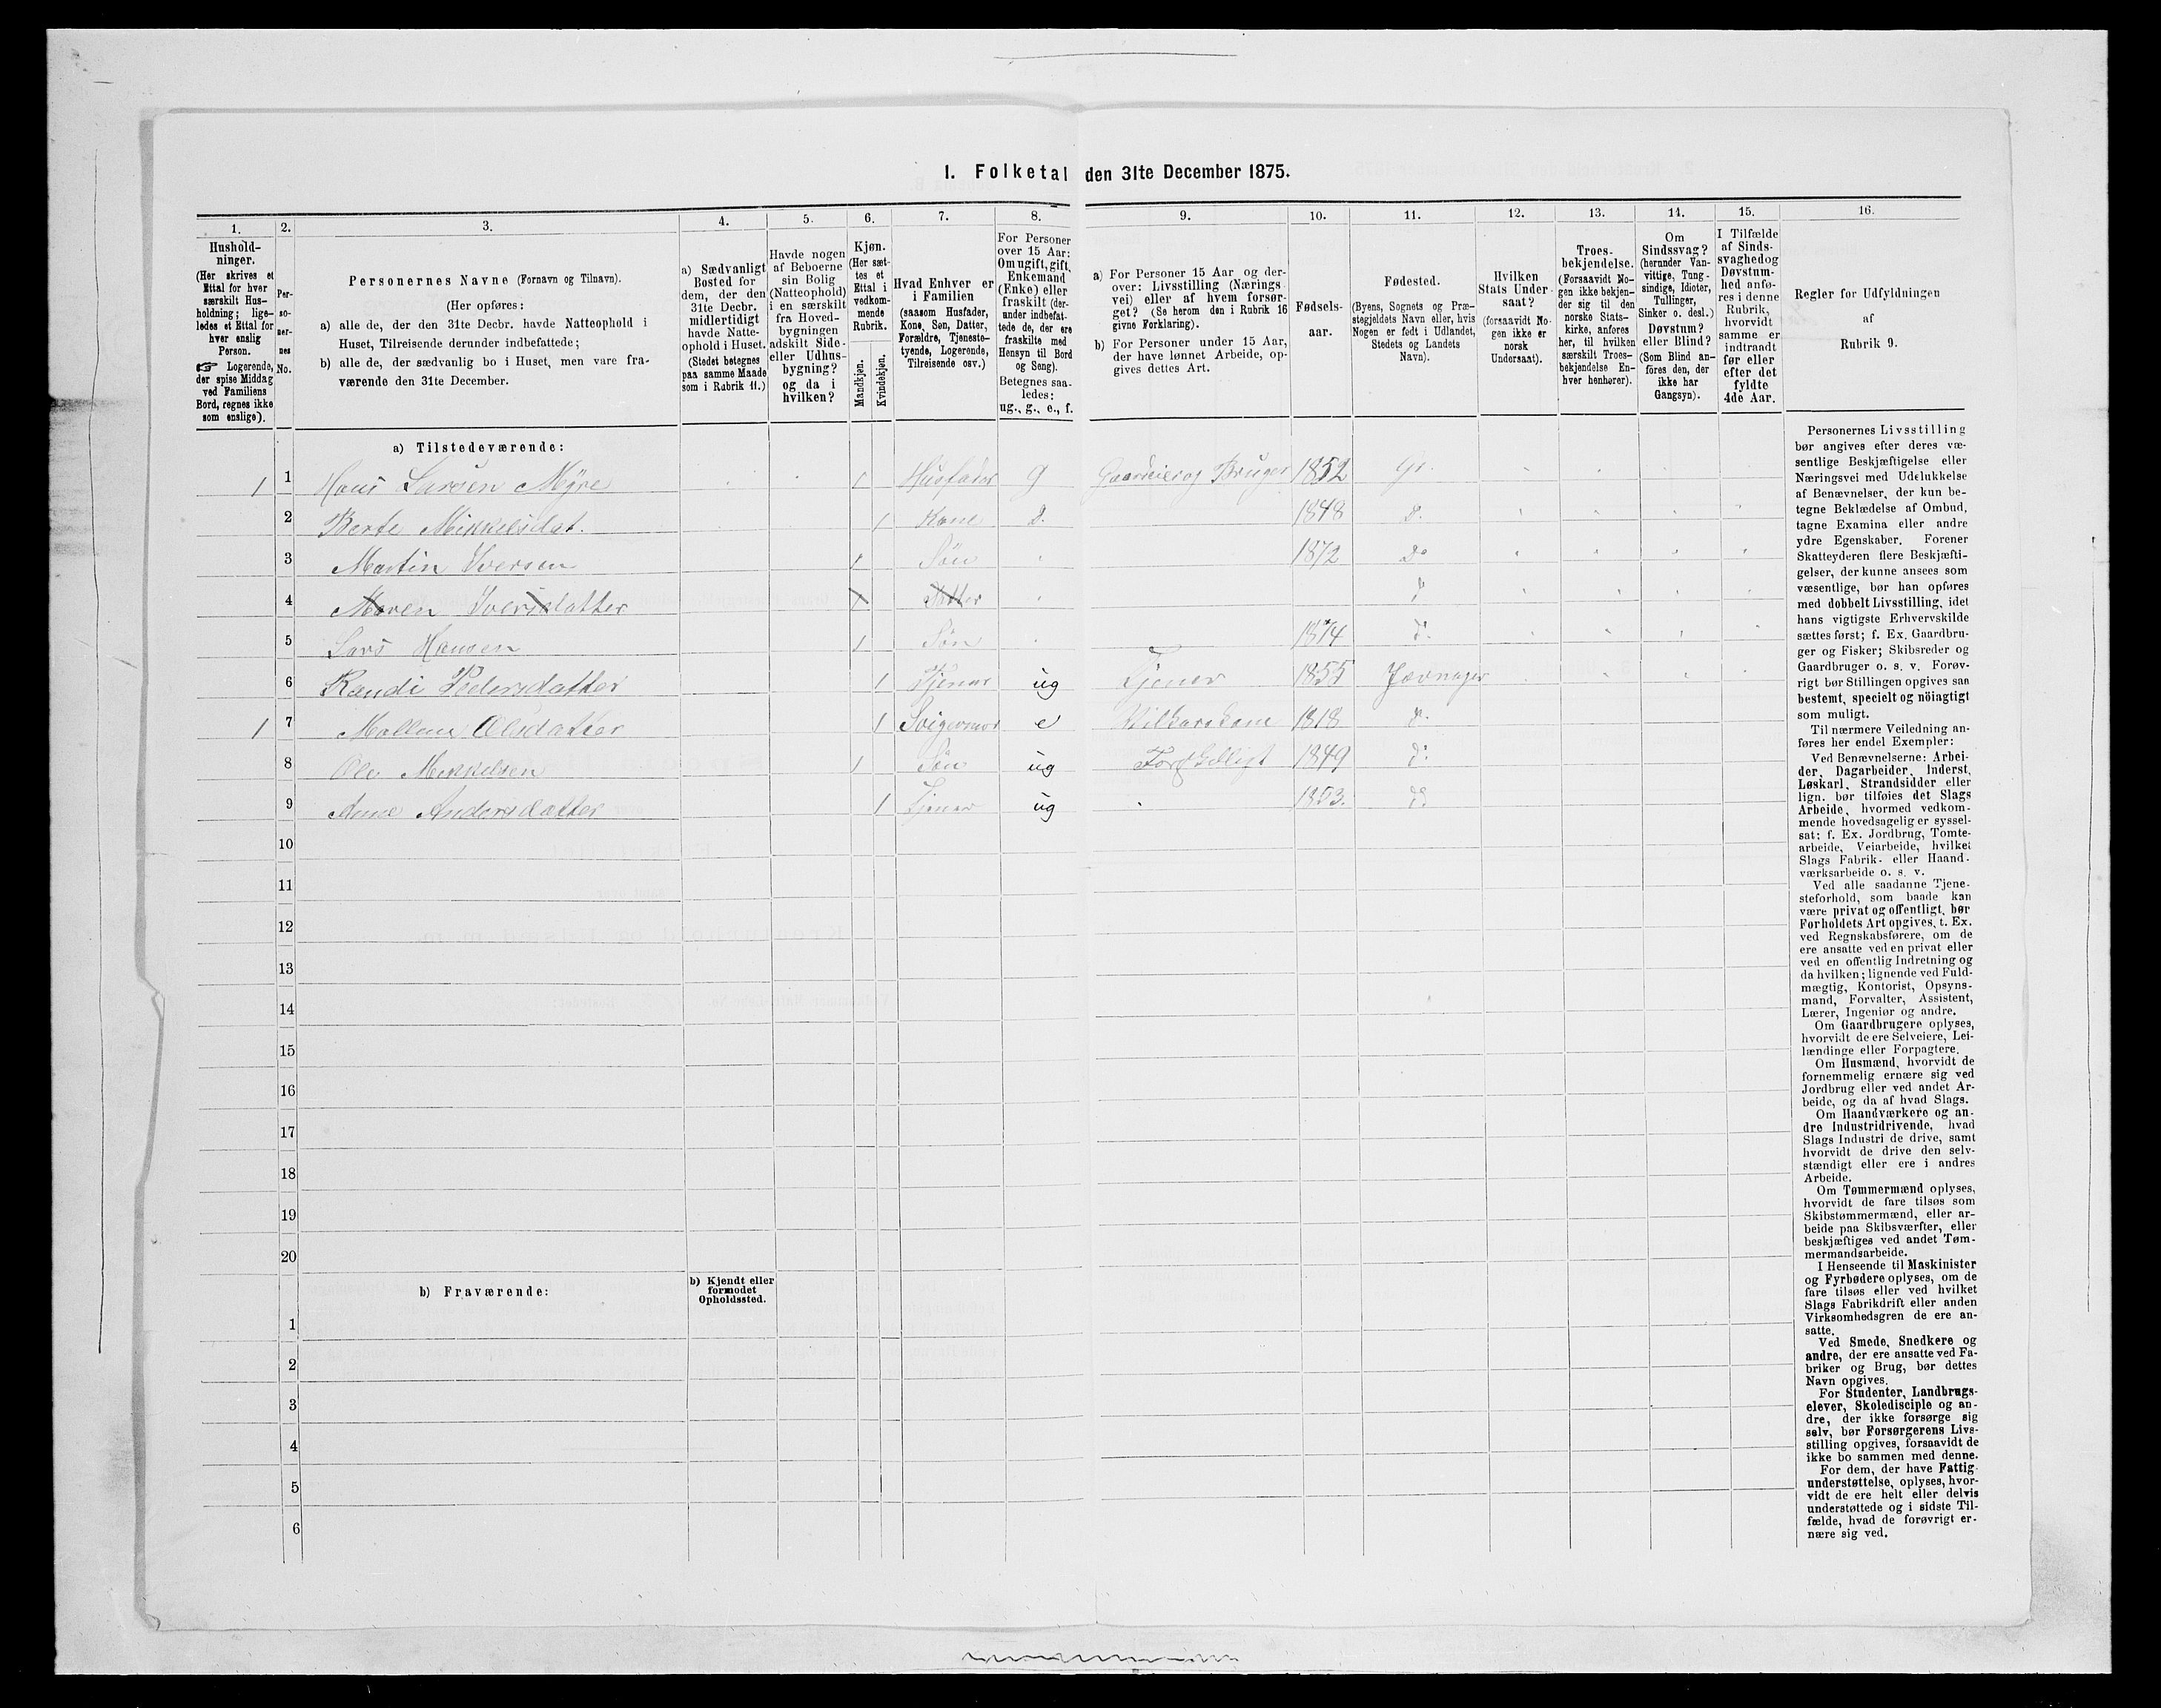 1. Folketal den 31te December 1875.
1. 2. 3. 4. 5. 6. 7. 8. 9. 10. 11. 12. 13. 14. 15. 16.
Hushold-
ninger.
(Her skrives et
Ettal for hver
særskilt Hus-
holdning; lige-
ledes et Ettal for
hver enslig
Person.
☞ Logerende,
der spise Middag
ved Familiens
Bord, regnes ikke
som enslige).
Per-
so-
ner-
nes
No.
Personernes Navne (Fornavn og Tilnavn).
(Her opføres:
a) alle de, der den 31te Decbr. havde Natteophold i
Huset, Tilreisende derunder indbefattede;
b) alle de, der sædvanlig bo i Huset, men vare fra-
værende den 31te December.
a) Sædvanligt
Bosted for
dem, der den
31te Decbr.
midlertidigt
havde Natte-
ophold i Huset.
(Stedet betegnes
paa samme Maade
som i Rubrik 11.)
Havde nogen
af Beboerne
sin Bolig
(Natteophold)
i en særskilt
fra Hoved-
bygningen
adskilt Side-
eller Udhus-
bygning?
og da i
hvilken?
Kjøn.
(Her sæt-
tes et
Ettal i
vedkom-
mende
Rubrik.
Mandkjøn.
Kvindekjøn.
Hvad Enhver er
i Familien
(saasom Husfader,
Kone, Søn, Datter,
Forældre, Tjeneste-
tyende, Logerende,
Tilreisende osv.)
For Personer
over 15 Aar:
Om ugift, gift,
Enkemand
(Enke) eller
fraskilt (der-
ander indbefat-
tede de, der ere
fraskilte med
Hensyn til Bord
og Seng).
Betegnes saa-
ledes:
ug., g., e., f.
a) For Personer 15 Aar og der-
over: Livsstilling (Nærings-
vei) eller af hvem forsør-
get? (Se herom den i Rubrik 16
givne Forklaring).
b) For Personer under 15 Aar,
der have lønnet Arbeide, op-
gives dettes Art.
Fødsels-
aar.
Fødested.
(Byens, Sognets og Præ-
stegjeldets Navn eller, hvis
Nogen er født i Udlandet,
Stedets og Landets
Navn).
Hvilken
Stats Under-
saat?
(forsaavidt No-
gen ikke er
norsk
Undersaat).
Troes-
bekjendelse.
(Forsaavidt No-
gen ikke bekjen-
der sig til den
norske Stats-
kirke, anføres
her, til hvilken
særskilt Troes-
bekjendelse En-
hver henhører).
Om
Sindssvag?
(herunder Van-
vittige, Tung-
sindige, Idioter,
Tullinger,
Sinker o. desl.)
Døvstum?
eller Blind?
(Som Blind an-
föres den, der
ikke har
Gangsyn).
I Tilfælde
af Sinds-
svaghed og
Døvstum-
hed anfø-
res i denne
Rubrik,
hvorvidt
samme er
indtraadt
før eller
efter det
fyldte
4de Aar.
Regler for Udfyldningen
af
Rubrik 9.
a) Tilstedeværende:
1 1 Hans Larsen Myre 1 Husfader g Gaardeier og Bruger 1852 Gr.
2 Berte Mikkelsdat. 1 Kone D. 1848 D.
3 Martin Iversen 1 Søn 1872 Do
4 Maren Iversdatter Datter
5 Lars Hansen 1 Søn 1874 D.
6 Randi Pedersdatter 1 Tjener ug Tjener 1855 Jevnager
1 7 Mallene Olsdatter 1 Svigermor e Vilkarskone 1818 D.
8 Ole Mikkelsen 1 Søn ug Forskelligt 1849 D.
9 Anne Andersdatter 1 Tjener ug 1853. D.
10
11
12
13
14
15
16
17
18
19
20
b) Fraværende:
b) Kjendt eller
formodet
Opholdssted.
1
2
3
4
5
6
Personernes Livsstilling
bør angives efter deres væ-
sentlige Beskjæftigelse eller
Næringsvei med Udelukkelse
af Benævnelser, der kun be-
tegne Beklædelse af Ombud,
tagne Examina eller andre
ydre Egenskaber. Forener
Skatteyderen flere Beskjæfti-
gelser, der kunne ansees som
væsentlige, bør han opføres
med dobbelt Livsstilling, idet
hans vigtigste Erhvervskilde
sættes først; f. Ex. Gaardbru-
ger og Fisker; Skibsreder og
Gaardbruger o. s. v. Forøv-
rigt bør Stillingen opgives saa
bestemt, specielt og nöiagtigt
som muligt.
Til nærmere Veiledning an-
føres her endel Exempler:
Ved Benævnelserne: Arbei-
der, Dagarbeider, Inderst,
Løskarl, Strandsidder eller
lign. bør tilföies det Slags
Arbeide, hvormed vedkom-
mende hovedsagelig er syssel-
sat; f. Ex. Jordbrug, Tomte-
arbeide, Veiarbeide, hvilket
Slags Fabrik- eller Haand-
værksarbeide o. s. v.
Ved alle saadanne Tjene-
steforhold, som baade kan
være privat og offentligt, bør
Forholdets Art opgives, t. Ex.
ved Regnskabsførere, om de
ere ansatte ved en privat eller
ved en offentlig Indretning og
da hvilken; lignende ved Fuld-
mægtig, Kontorist, Opsyns-
mand, Forvalter, Assistent,
Lærer, Ingeniør og andre.
Om Gaardbrugere oplyses,
hvorvidt de ere Selveiere, Lei-
lændinge eller Forpagtere.
Om Husmænd, hvorvidt de
fornemmelig ernære sig ved
Jordbrug eller ved andet Ar-
beide, og da af hvad Slags.
Om Haandværkere og an-
dre Industridrivende, hvad
Slags Industri de drive, samt
hvorvidt de drive den selv-
stændigt eller ere i andres
Arbeide.
Om Tømmermænd oplyses,
hvorvidt de fare tilsøs som
Skibstømmermænd, eller ar-
beide paa Skibsværfter, eller
beskjæftiges ved andet Tøm-
mermandsarbeide.
I Henseende til Maskinister
og Fyrbødere oplyses, om de
fare tilsøs eller ved hvilket
Slags Fabrikdrift eller anden
Virksomhedsgren de ere an-
satte.
Ved Smede, Snedkere og
andre, der ere ansatte ved Fa-
briker og Brug, bør dettes
Navn opgives.
For Studenter, Landbrugs-
elever, Skoledisciple og an-
dre, der ikke forsørge sig
selv, bør Forsørgerens Livs-
stilling opgives, forsaavidt de
ikke bo sammen med denne.
For dem, der have Fattig-
understøttelse, oplyses, hvor-
vidt de ere helt eller delvis
understøttede og i sidste Til-
fælde, hvad de forøvrigt er-
nære sig ved.